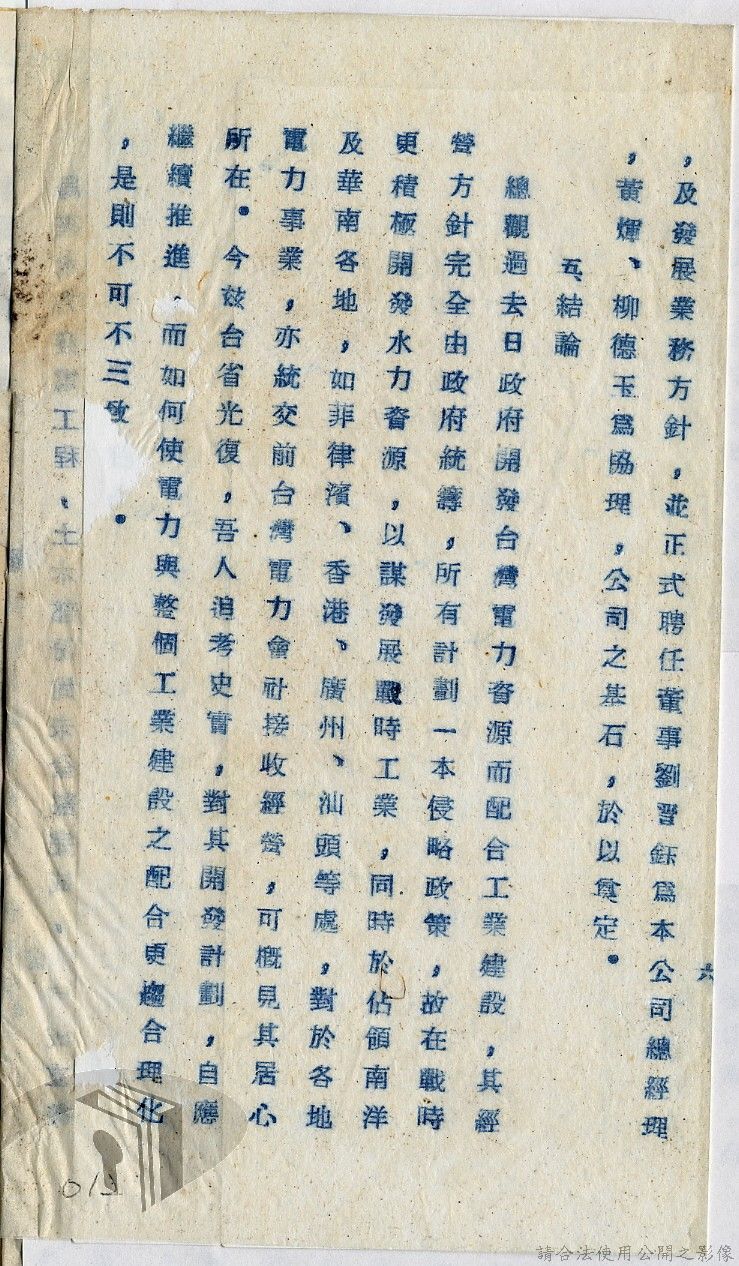 六
，及發展業務方針，並正式聘任董事劉晋鈺爲本公司總經理
，黃煇、柳德玉爲協理，公司之基石，於以奠定。
五、結論
總觀過去日政府開發台灣電力資源而配合工業建設，其經
營方針完全由政府統籌，所有計劃一本侵略政策，故在戰時
更積極開發水力資源，以謀發展戰時工業，同時於佔領南洋
及華南各地，如菲律濱、香港、廣州、汕頭等處，對於各地
電力事業，亦統交前台灣電力會社接收經營，可槪見其居心
所在。今玆台省光復，吾人追考史實，對其開發計劃，自應
繼續推進，而如何使電力與整個工業建設之配合更趨合理化
，是則不可不三致。
請合法使用公開之影像